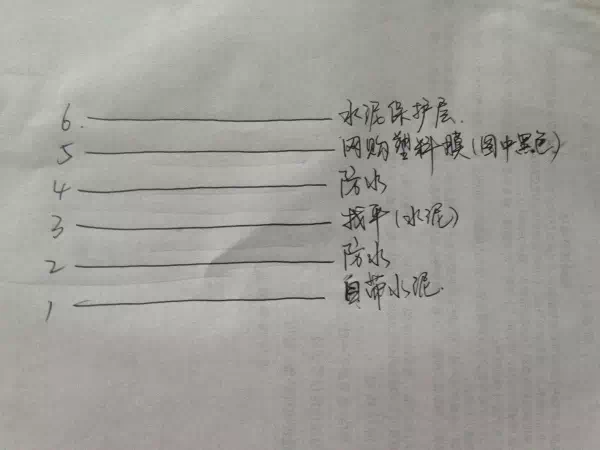 6. 水泥保护层.
5 网购塑料膜(图中黑色)
4 防水
3 找平(水泥)
2 防水
1 自带水泥.